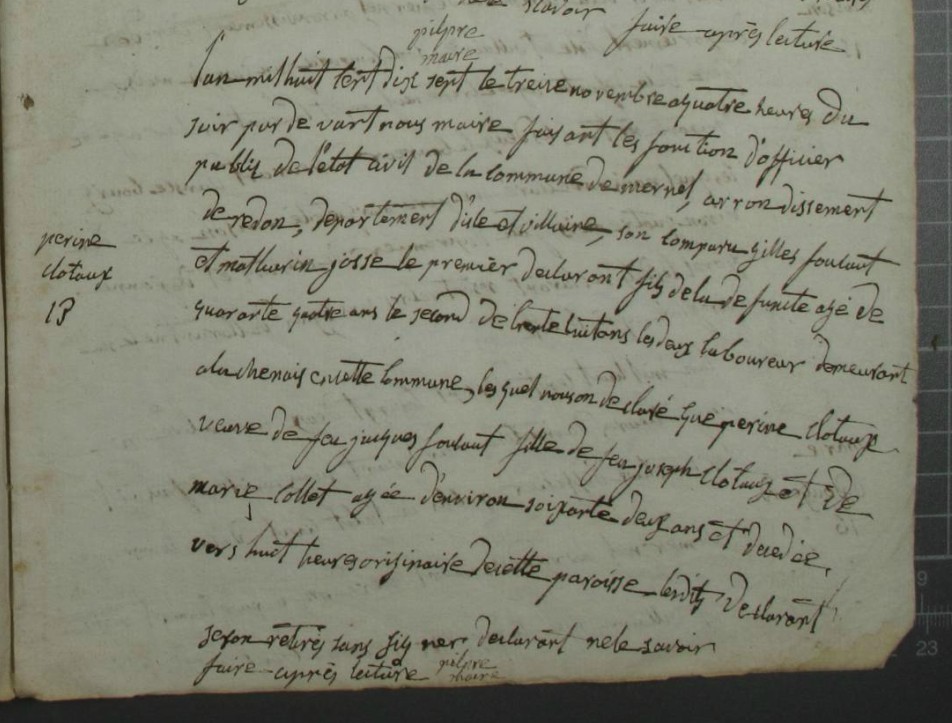 savoir
faire après lecture
pilpre
maire
l'an mil huit cent dix sept le treize novembre a quatre heures du
soir par de vant nous maire faisant les fonction d'officier
publiq de l'état civil de la commune de mernel, arron dissement
de redon, departement d'ile et villaine, son comparu gilles foulaut
et mathurin josse le premier declarant fils de la defunte agé de
quarante quatre ans le second de trente huit ans les deux laboureur demeurant
a la chenais en cette commune, les quel nous on declaré que perine clotaux
veuve de feu jacques foulaut fille de feu joseph clotaux et de
marie collet agée d'environ soixante deux ans et decedée,
vers huit heures originaire de cette paroisse lesdits declarant
se son retirés sans sig ner declarant ne le savoir
faire après lecture pilpre
maire
perine
clotaux
13